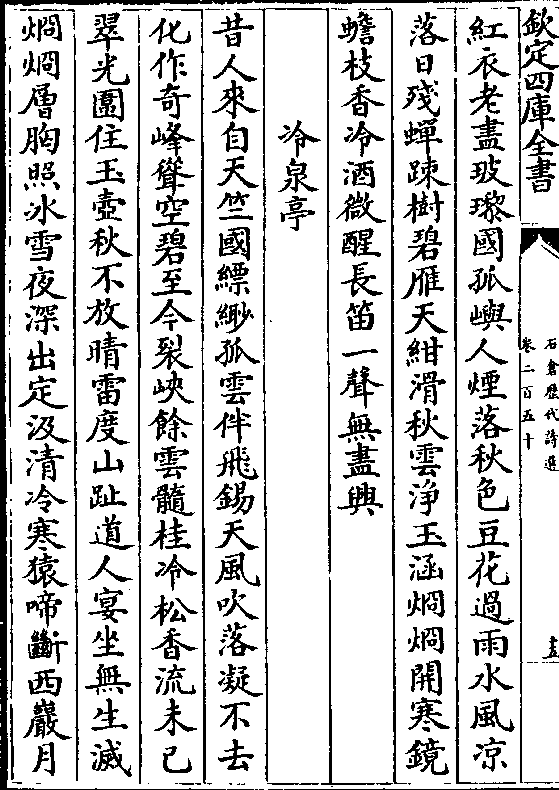 欽定四庫全書
石倉歷代詩選
卷二百五十
紅衣老盡玻瓈國孤嶼人煙落秋色豆花過雨水風凉
落日殘蟬踈樹碧雁天紺滑秋雲淨玉涵烱烱開寒鏡
蟾枝香冷酒微醒長笛一聲無盡興
冷泉亭
昔人來自天竺國縹緲孤雲伴飛錫天風吹落凝不去
化作奇峰聳空碧至今裂峽餘雲髓桂冷松香流未已
翠光圍住玉壺秋不放晴雷度山趾道人宴坐無生滅
烱烱層胸照冰雪夜深出定汲清冷寒猿啼斷西巖月